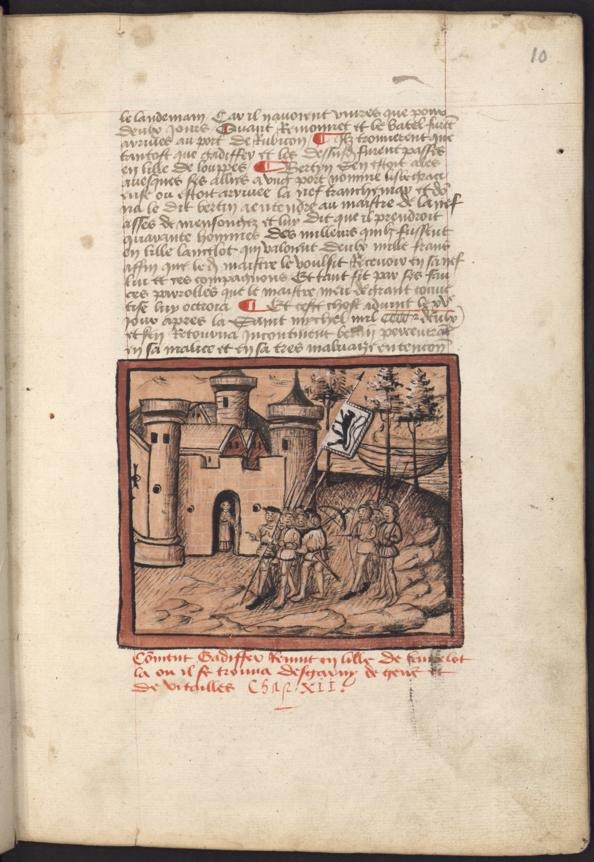 10
le landemain Car il nauoient viures que pour
deulx Jours Quant Remonnet et le batel furēt
arriues au port de Rubicon ¶ Ilz trouuerent que
tantost que gadiffer et les dessusd furent passes
en lille de louppes ¶ Bertin sen estoit ales
auesques ses allies a vng port nomme lisle graci
euse ou estoit arriuee la nef tranchemar et dō
na le dit bertin a entendre au maistre de la nef
asses de mensonges et luy dit que il prendroit
quarante hommes des milleurs fussent
en lille lancelot qui valoient deulx mille frans
affin que le d maistre le voulsit Recevoir en sa nef
lui et ses compagnons Et tant fit par ses fau
ces parrolles que le maistre meu de grant
tise luy octroia ¶ Et ceste chose aduint le xv
Jour apres la Saint mychel mil cccc et deulx
et sen Retourna incontinent bertin perseuerāt
en sa malice et en sa tres maluaize entencon
Cōment Gadiffer Reuint en lille de lancelot
la ou il se trouua desgarny de gens et
de vitailles Chap. XII.